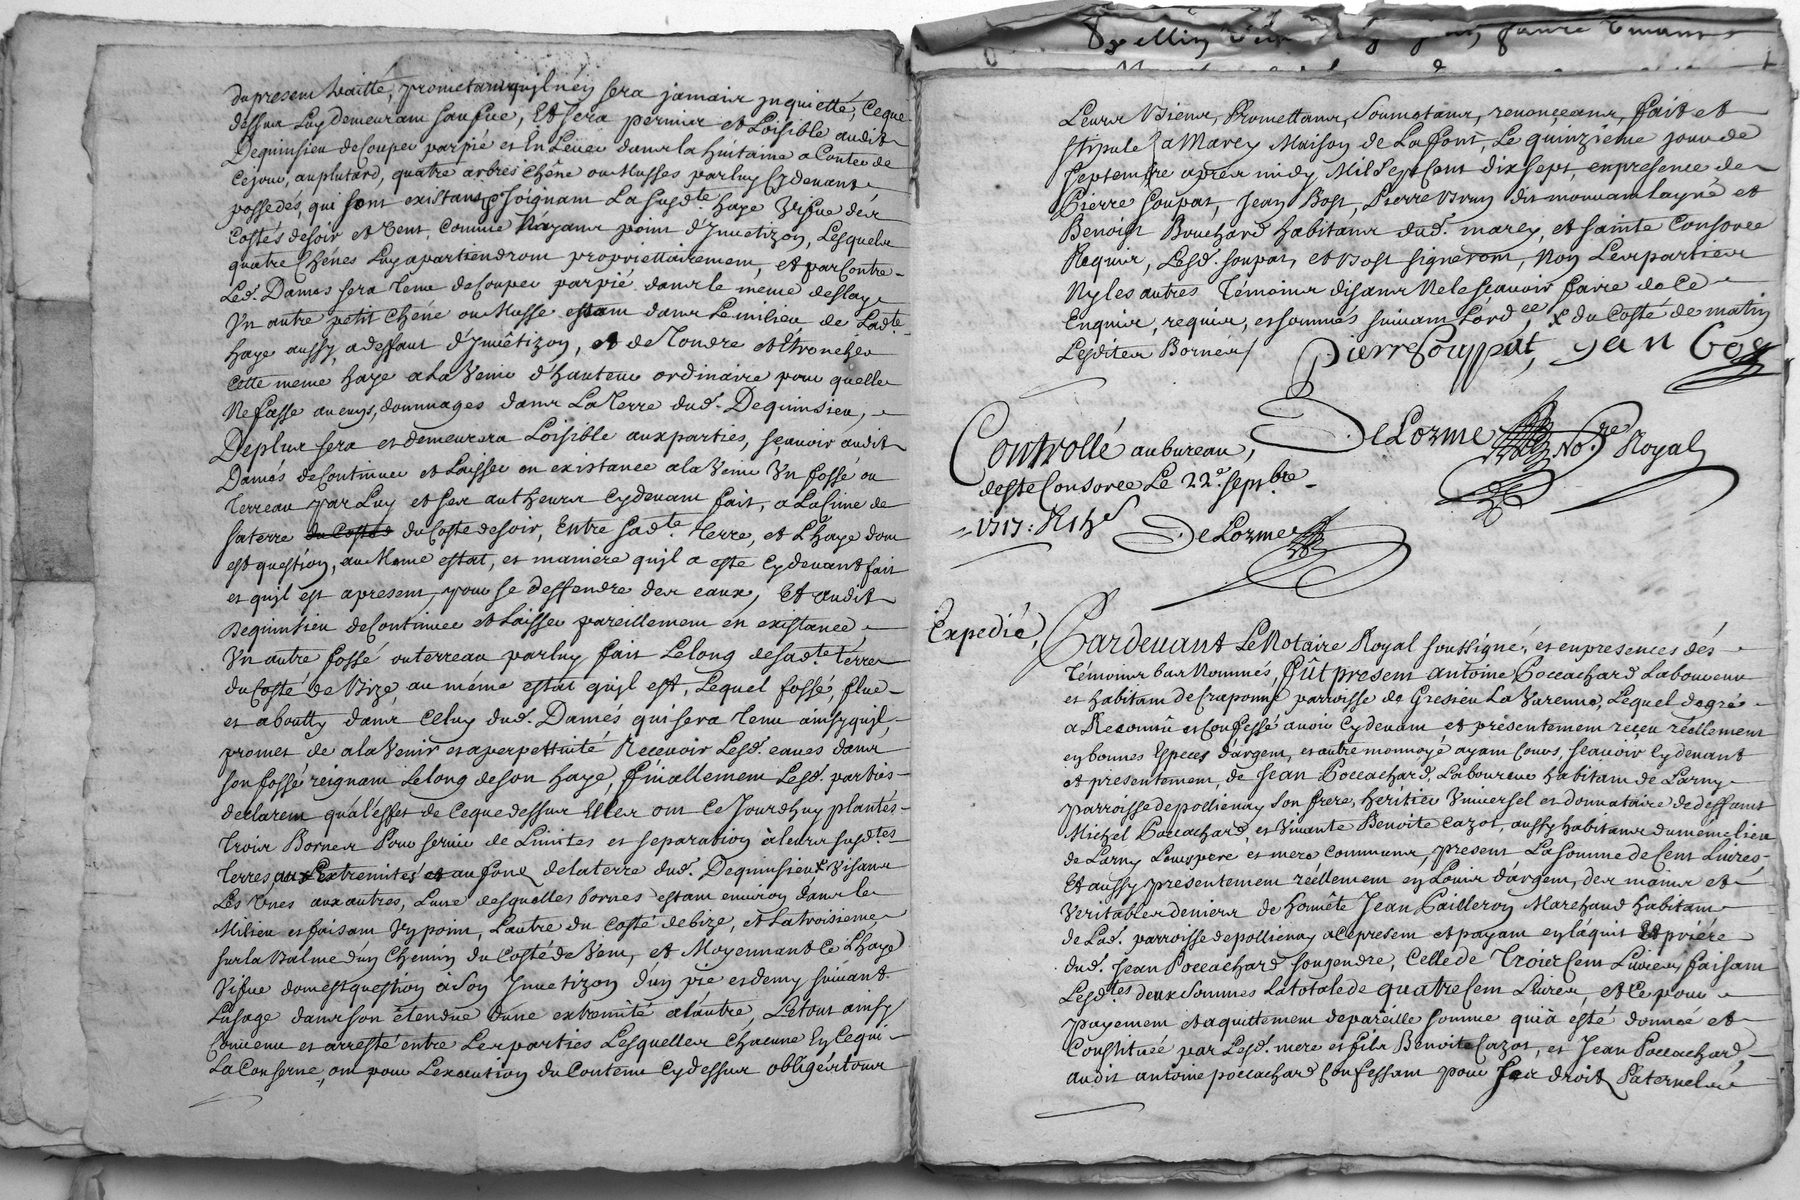 du present traitté, prometant quil n'en sera jamais inquietté, Ceque
dessus Luy demeurant sauf, Et sera permis et Loisible audit
Dequinsieu de Couper par pié et Enlever dans la huitaine a Conter de
Cejour, au plutard, quatre arbres Chêne ou Musses par luy Cydevant
possedés, qui sont existans Joignant La susdte. haye vifve des
Costés de soir et vent, Comme N'ayant point d'Jnvetizon, Lesquels
quatre Chênes Luy apartiendront proprietairement, et par Contre
Led. Damés sera Tenu de Couper par pié dans le meme deslay
Vn autre petit Chêne ou Musse estant dans Le milieu de Ladte.
haye aussy, a deffaut d'Jnvétizon, et de Tondre et Etroncher
Cette meme haye a La Venir d'hauteur ordinaire pour quelle
Ne fasse aucuns dommages dans La Terre dud. Dequinsieu,
De plus sera et demeurera Loisible aux parties, sçavoir audit
Damés de Continuer et Laisser en existance a la Venir Vn fossé ou
Terreau par Luy et ses autheurs Cydevant fait, a La Cime de
sa terre du Costé du Costé de soir, Entre sadte. Terre, et L'haye dont
est question, au Meme estat, et maniere quil a esté Cydevant fait
et quil est apresent, pour se deffendre des eaux, Et audit
Dequinsieu de Continuer et Laisser pareillement en existance
Vn autre fossé ou terreau par luy fait Le long de sadte. Terre
du Costé de Bize, au même estat quil est, Lequel fossé flue
et aboutty dans Celuy dud. Damés qui sera Tenu ainsy quil
promet de a la Venir et a perpettuité Recevoir Lesd. eaues dans
son fossé reignant Le long de son haye, finallement Lesd. parties
declarent qu'a l'effet de Ceque dessus Elles ont Ce Jourdhuy plantés
Trois Bornes Pour servir de Limites et separation à leurs susdtes.
Terres aux Extremités et au fonc de la terre dud. Dequinsieu x visans
Les Vnes aux autres, Lune desquelles bornes estant environ dans le
Milieu et faisant Vn point, Lautre du Costé de bize, et La troisieme
sur la Balme d'un Chemin du Costé de Vent, et Moyennant Ce L'haye
Vifve dont est question à son Jnvetizon d'un pié et demy suivant
Lusage dans son étendue d'une extremité a l'autre, Le tout ainsy
Convenu et arresté entre Les parties Lesquelles Chacune En Ce qui
La Conserne, ont pour L'execution du Contenu Cydessus obligés tous
Leurs Biens, Promettans, Soumetans, renonceans, fait et
stipulé a Marcy Maison de Lafont, Le quinzième jour de
septembre apres midy Mil Sept Cent dix sept, en presence de
Pierre Coupat, Jean Bost, Pierre Brun dit mouvant layné et
Benoist Bouchard habitans dud. marcy, et sainte Consorce
Requis, Lesd. Coupat, et Bost signeront, Non Les parties
Ny les autres Témoins disans Ne le sçavoir faire de Ce
Enquis, requis, et sommés suivant Lordce x du Costé de matin
Lesdites Bornes /
Pierre Couppat, Jan Bos
DeLorme No.re Royal
Controllé au bureau,
de ste Consorce Le 22e. septbre.
1717: R 1h s
DeLorme
Expedié,
Pardevant Le Notaire Royal soussigné, et en presences dés
Témoins bas Nommés, fût present antoine Poccachard Laboureur
et habitant de Craponne parroisse de Gresieu La Varenne, Lequel de gré
a Reconnû et Confessé avoir Cydevant et présentement receu réellement
en bonnes Especes d'argent, et autre monnoye ayant Cours, sçavoir Cydevant
et présentement, de Jean Poccachard, Laboureur habitant de Larny
Parroisse de pollienay son frere, heritier Vniversel et donnataire de deffunt
Michel Poccachard, et Vivante Benoite Cazot, aussy habitans du même lieu
de Larny Leurs pere et mere Communs, present La somme de Cent Livres
Et aussy présentement réellement en Louis d'argent, des mains et
Veritables deniers de honnête Jean Pailleron Marchand habitant
de Lad. parroisse de pollienay a Ce present et payant en l'aquit Et prière
dud. Jean Poccachard son gendre, Celle de Trois Cent Livres faisant
Lesdtes deux sommes La totale de quatre Cent Livres, et Ce pour
payement et aquittement de pareille somme qui à esté donnée et
Constituée par Lesd. mere et fils Benoite Cazot, et Jean Poccachard,
audit antoine poccachard Confessant pour ses droits Paternels